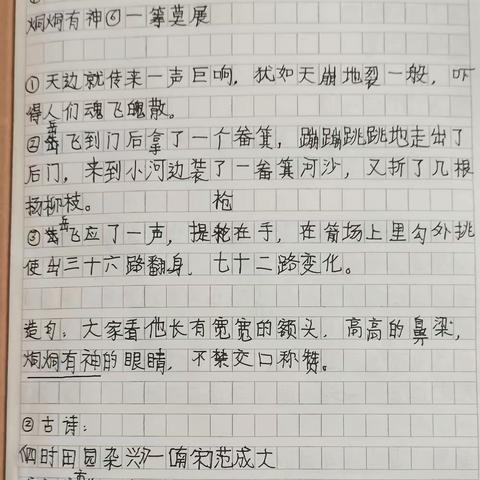 炯炯有神⑥一筹莫展
①天边就传来一声巨响，犹如天崩地裂一般，吓
得人们魂飞魄散。
②岳飞到门后拿了一个畚箕，蹦蹦跳跳地走出了
后门，来到小河边装了一畚箕河沙，又折了几根
杨柳枝。
③岳飞应了一声，提枪在手，在箭场上里勾外挑
使出三十六路翻身，七十二路变化。
造句：大家看他长有宽宽的额头，高高的鼻梁，
炯炯有神的眼睛，不禁交口称赞。
②古诗：
四时田园杂兴 南宋范成大